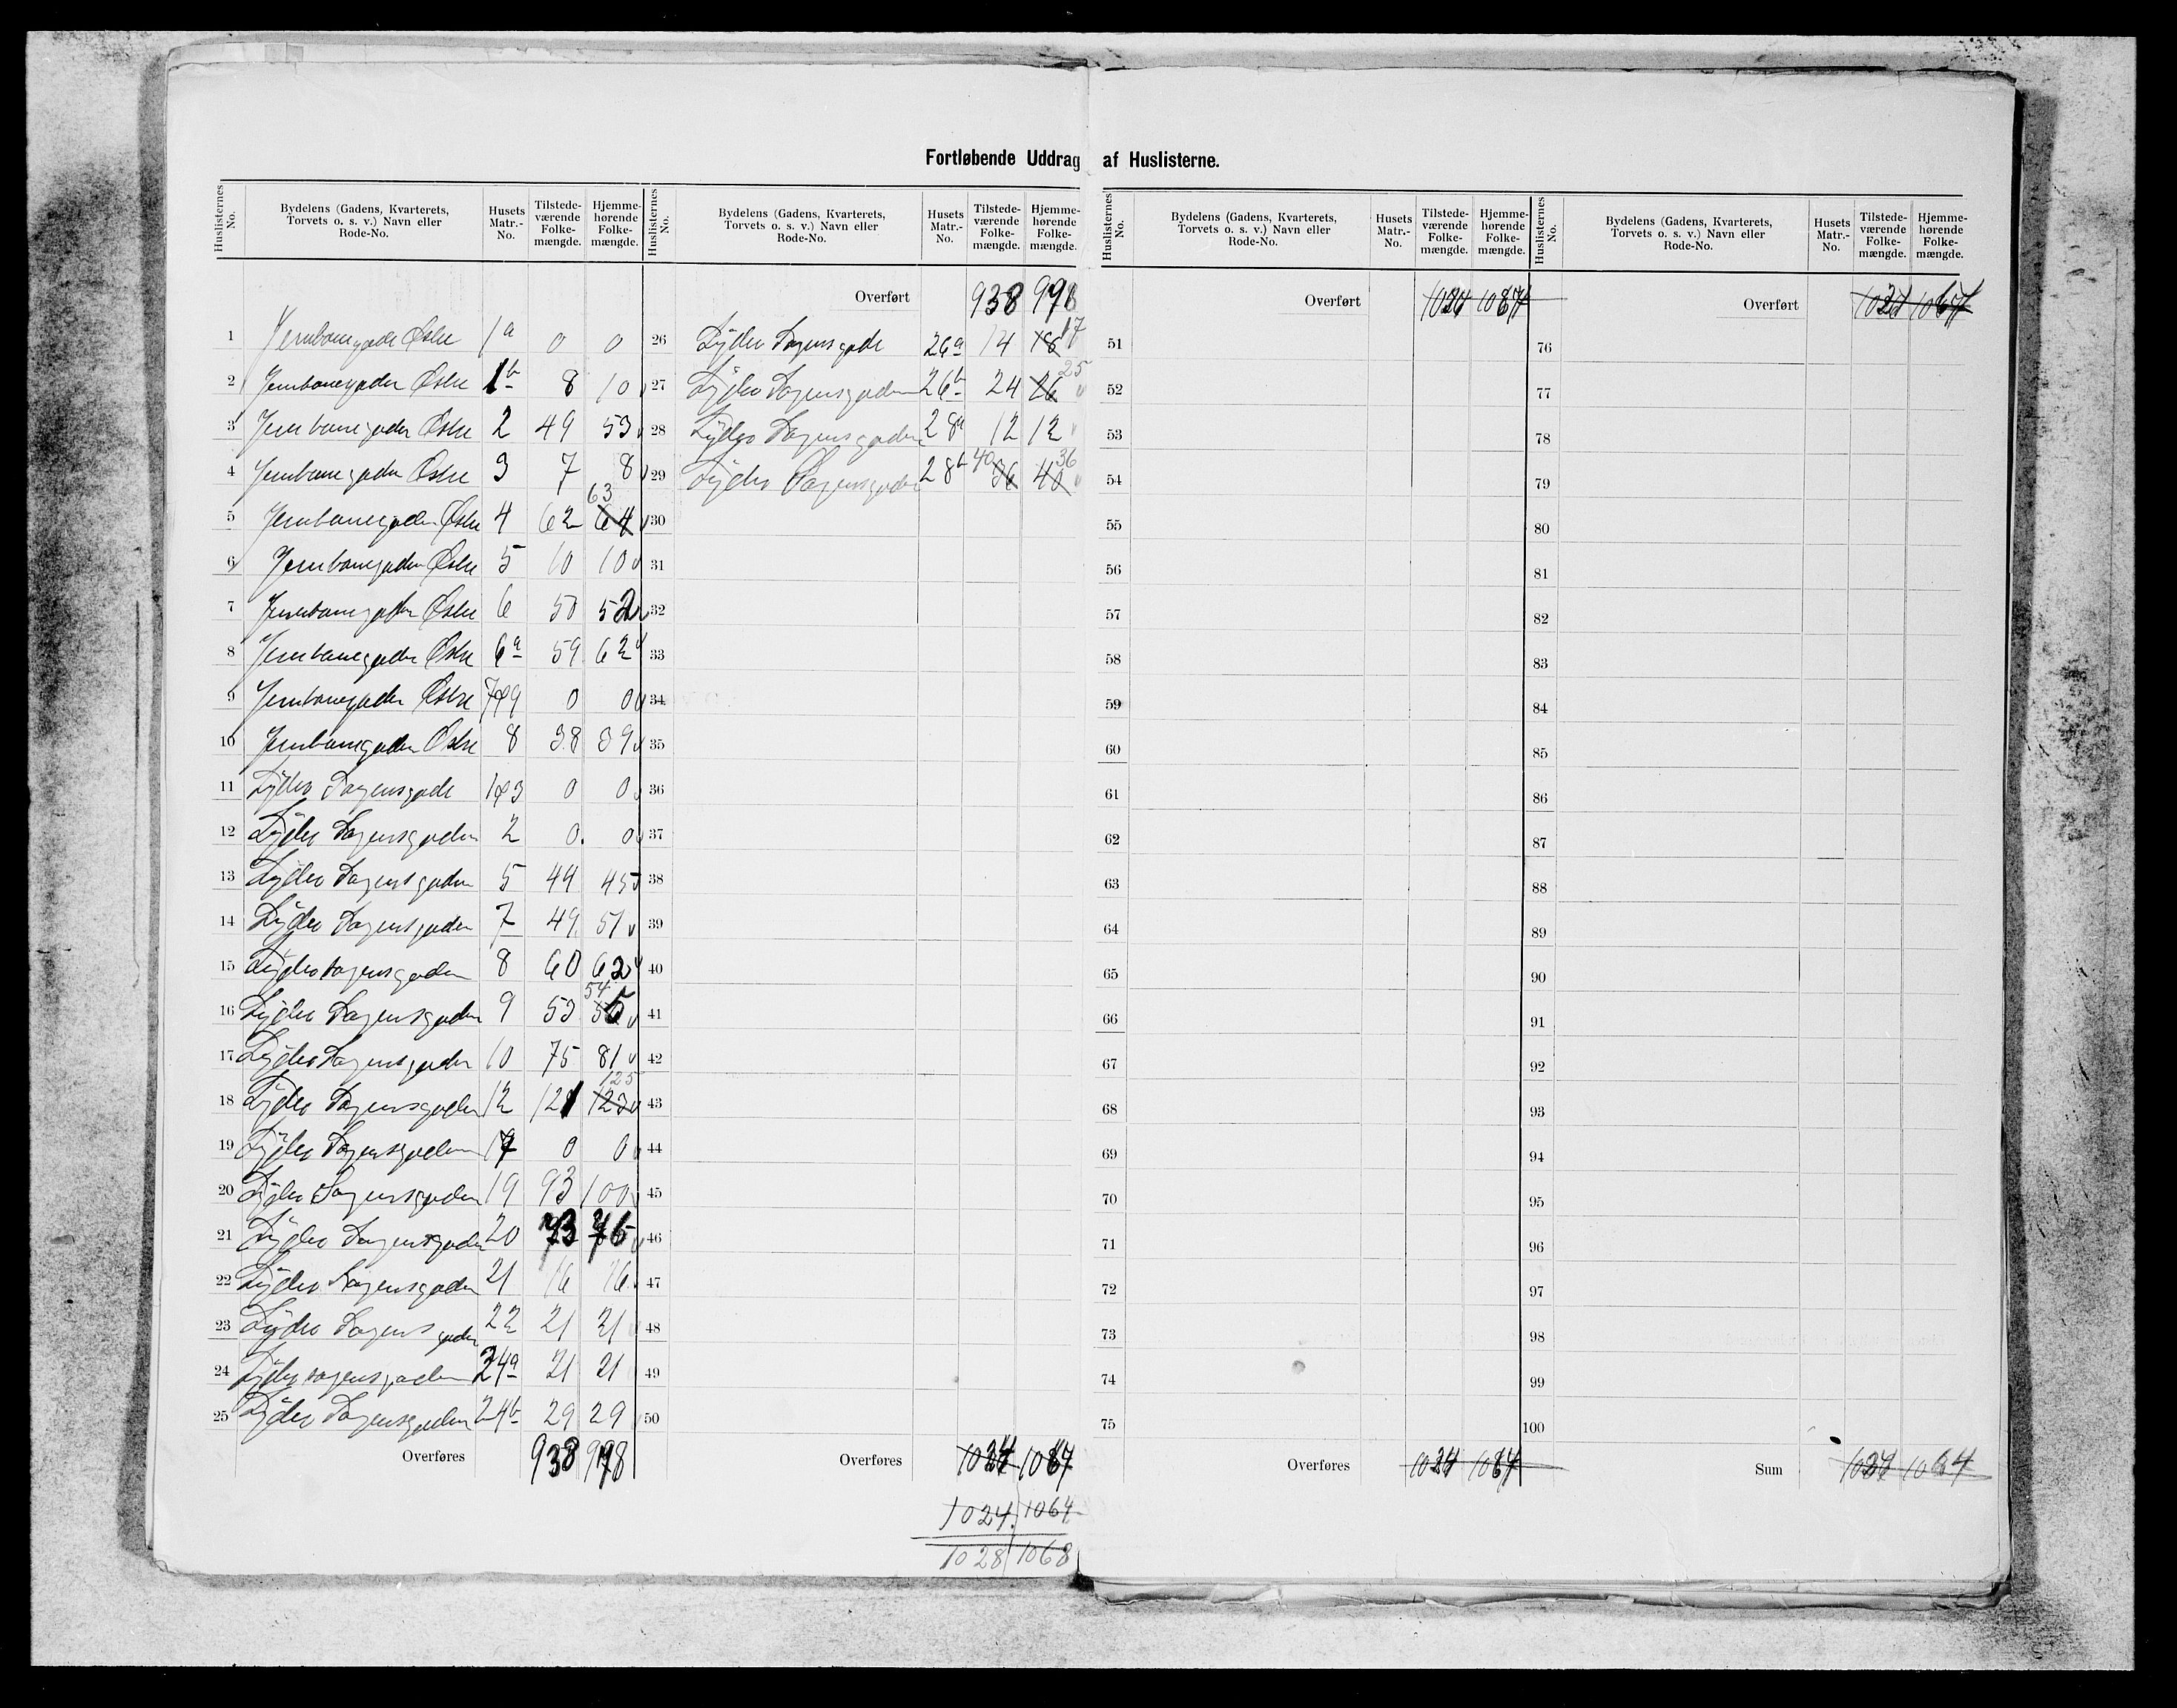 Fortløbende Uddrag af Huslisterne.
Huslisternes No. | Bydelens (Gadens, Kvarterets, Torvets o. s. v.) Navn eller Rode-No. | Husets Matr.-No. | Tilstedeværende Folkemængde. | Hjemmehørende Folkemængde.
1 Jernbanegade Østre 1a 0 0
2 Jernbanegaden Østre 1b 8 10
3 Jernbanegaden Østre 2 49 53
4 Jernbanegaden Østre 3 7 8
5 Jernbanegaden Østre 4 62 64 63
6 Jernbanegaden Østre 5 10 10
7 Jernbanegaden Østre 6 50 52
8 Jernbanegaden Østre 6a 59 62
9 Jernbanegaden Østre 7&9 0 0
10 Jernbanegaden Østre 8 38 39
11 Lyder Sagensgade 1&3 0 0
12 Lyder Sagensgaden 2 0. 0
13 Lyder Sagensgaden 5 44 45
14 Lyder Sagensgaden 7 49 51
15 Lyder Sagensgaden 8 60 62
16 Lyder Sagensgaden 9 53 54
17 Lyder Sagensgaden 10 75 81
18 Lyder Sagensgaden 12 121 123 125
19 Lyder Sagensgaden 0 0
20 Lyder Sagensgaden 19 93 100
21 Lyder Sagensgaden 20 73 76
22 Lyder Sagensgaden 21 16 16
23 Lyder Sagensgaden 22 21 21
24 Lyder Sagensgaden 24a 21 21
25 Lyder Sagensgaden 24b 29 29
Overføres 938 978
Huslisternes No. | Bydelens (Gadens, Kvarterets, Torvets o. s. v.) Navn eller Rode-No. | Husets Matr.-No. | Tilstedeværende Folkemængde. | Hjemmehørende Folkemængde.
Overført 938 978
26 Lyder Sagensgade 26a 14 18 17
27 Lyder Sagensgaden 26b 24 26 25
28 Lyder Sagensgaden 28a 12 12
29 Lyder Sagensgaden 28b 40 36 40 36
30
31
32
33
34
35
36
37
38
39
40
41
42
43
44
45
46
47
48
49
50
Overføres 1024 1067
1024 1064
1028 1068
Huslisternes No. | Bydelens (Gadens, Kvarterets, Torvets o. s. v.) Navn eller Rode-No. | Husets Matr.-No. | Tilstedeværende Folkemængde. | Hjemmehørende Folkemængde.
Overført 1024 1067
51
52
53
54
55
56
57
58
59
60
61
62
63
64
65
66
67
68
69
70
71
72
73
74
75
Overføres 1024 1064
Huslisternes No. | Bydelens (Gadens, Kvarterets, Torvets o. s. v.) Navn eller Rode-No. | Husets Matr.-No. | Tilstedeværende Folkemængde. | Hjemmehørende Folkemængde.
Overført 1024 1067
76
77
78
79
80
81
82
83
84
85
86
87
88
89
90
91
92
93
94
95
96
97
98
99
100
Sum 1024 1064